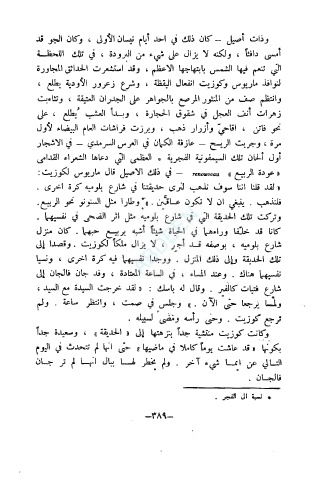 وذات أصيل – كان ذلك في احد أيام نيسان الأولى ، وكان الجو قد
أمسى دافئاً ، ولكنه لا يزال على شيء من البرودة ، في تلك اللحظة
التي تنعم فيها الشمس بابتهاجها الأعظم ، وقد استشعرت الحدائق المجاورة
لنوافذ ماريوس وكوزيت انفعال اليقظة ، وشرع زعرور الأودية يطلع ،
وانتظم صف من المنثور المرصع بالجواهر على الجدران العتيقة ، وتثاءبت
زهرات أنف العجل في شقوق الحجارة ، وبدأ العشب يطلع ، على
نحو فاتن ، أقاحي وأزرار ذهب ، وبرزت فراشات العام البيضاء لأول
مرة ، وجربت الريح – عازفة الكمان في العرس السرمدي – في الاشجار
أول ألحان تلك السيمفونية الفجرية * العظمى التي دعاها الشعراء القدامى
« عودة الربيع » renouveau – في ذلك الاصيل قال ماريوس لكوزيت :
« لقد قلنا اننا سوف نذهب لنرى حديقتنا في شارع بلوميه كرة اخرى .
فلنذهب . ينبغي ان لا نكون عاقين . » وطارا مثل السنونو نحو الربيع .
وتركت تلك الحديقة التي في شارع بلوميه مثل اثر الضحى في نفسيهما .
كانا قد خلفا وراءهما في الحياة شيئاً أشبه بربيع حبهما . كان منزل
شارع بلوميه ، بوصفه قد أجر ، لا يزال ملكاً لكوزيت . وقصدا إلى
تلك الحديقة وإلى ذلك المنزل . ووجدا نفسيهما فيه كرة اخرى ، ونسيا
نفسيهما هناك . وعند المساء ، في الساعة المعتادة ، وفد جان فالجان إلى
شارع فتيات كالفير . وقال له باسك : « لقد خرجت السيدة مع السيد ،
ولما يرجعا حتى الآن . » وجلس في صمت ، وانتظر ساعة . ولم
ترجع كوزيت . وحنى رأسه ومضى لسبيله .
وكانت كوزيت منتشية جداً بنزهتها إلى « الحديقة » ، وسعيدة جداً
بكونها « قد عاشت يوماً كاملا في ماضيها » حتى انها لم تتحدث في اليوم
التالي عن إيما شيء آخر . ولم يخطر لها ببال انها لم تر جان
فالجان .
* نسبة الى الفجر .
–٣٨٩–